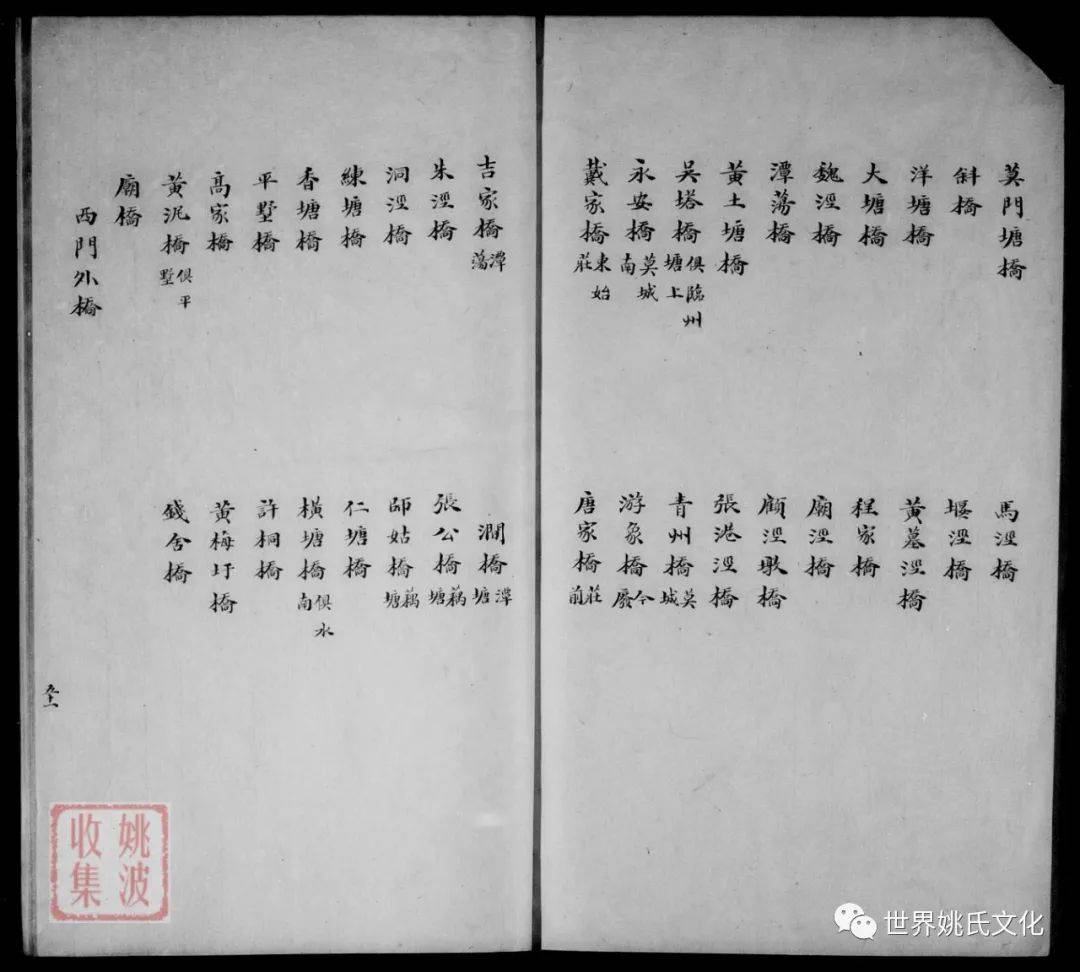 莫門塘橋 馬涇橋
斜橋 堰涇橋
洋塘橋 黃墓涇橋
大塘橋 程家橋
魏涇橋 廟涇橋
潭蕩橋 顧涇墩橋
黃土塘橋 張港涇橋
吳塔橋 俱臨州塘上 青州橋 莫城
永安橋 莫城南 游象橋 今廢
戴家橋 東始莊 唐家橋 莊前
吉家橋 潭蕩 澗橋 潭塘
朱涇橋 張公橋 藕塘
洞涇橋 師姑橋 藕塘
練塘橋 仁塘橋
香塘橋 橫塘橋 俱水南
平墅橋 許桐橋
高家橋 黃梅圩橋
黃泥橋 俱平墅 錢舍橋
廟橋
西門外橋
姚波收集
世界姚氏文化